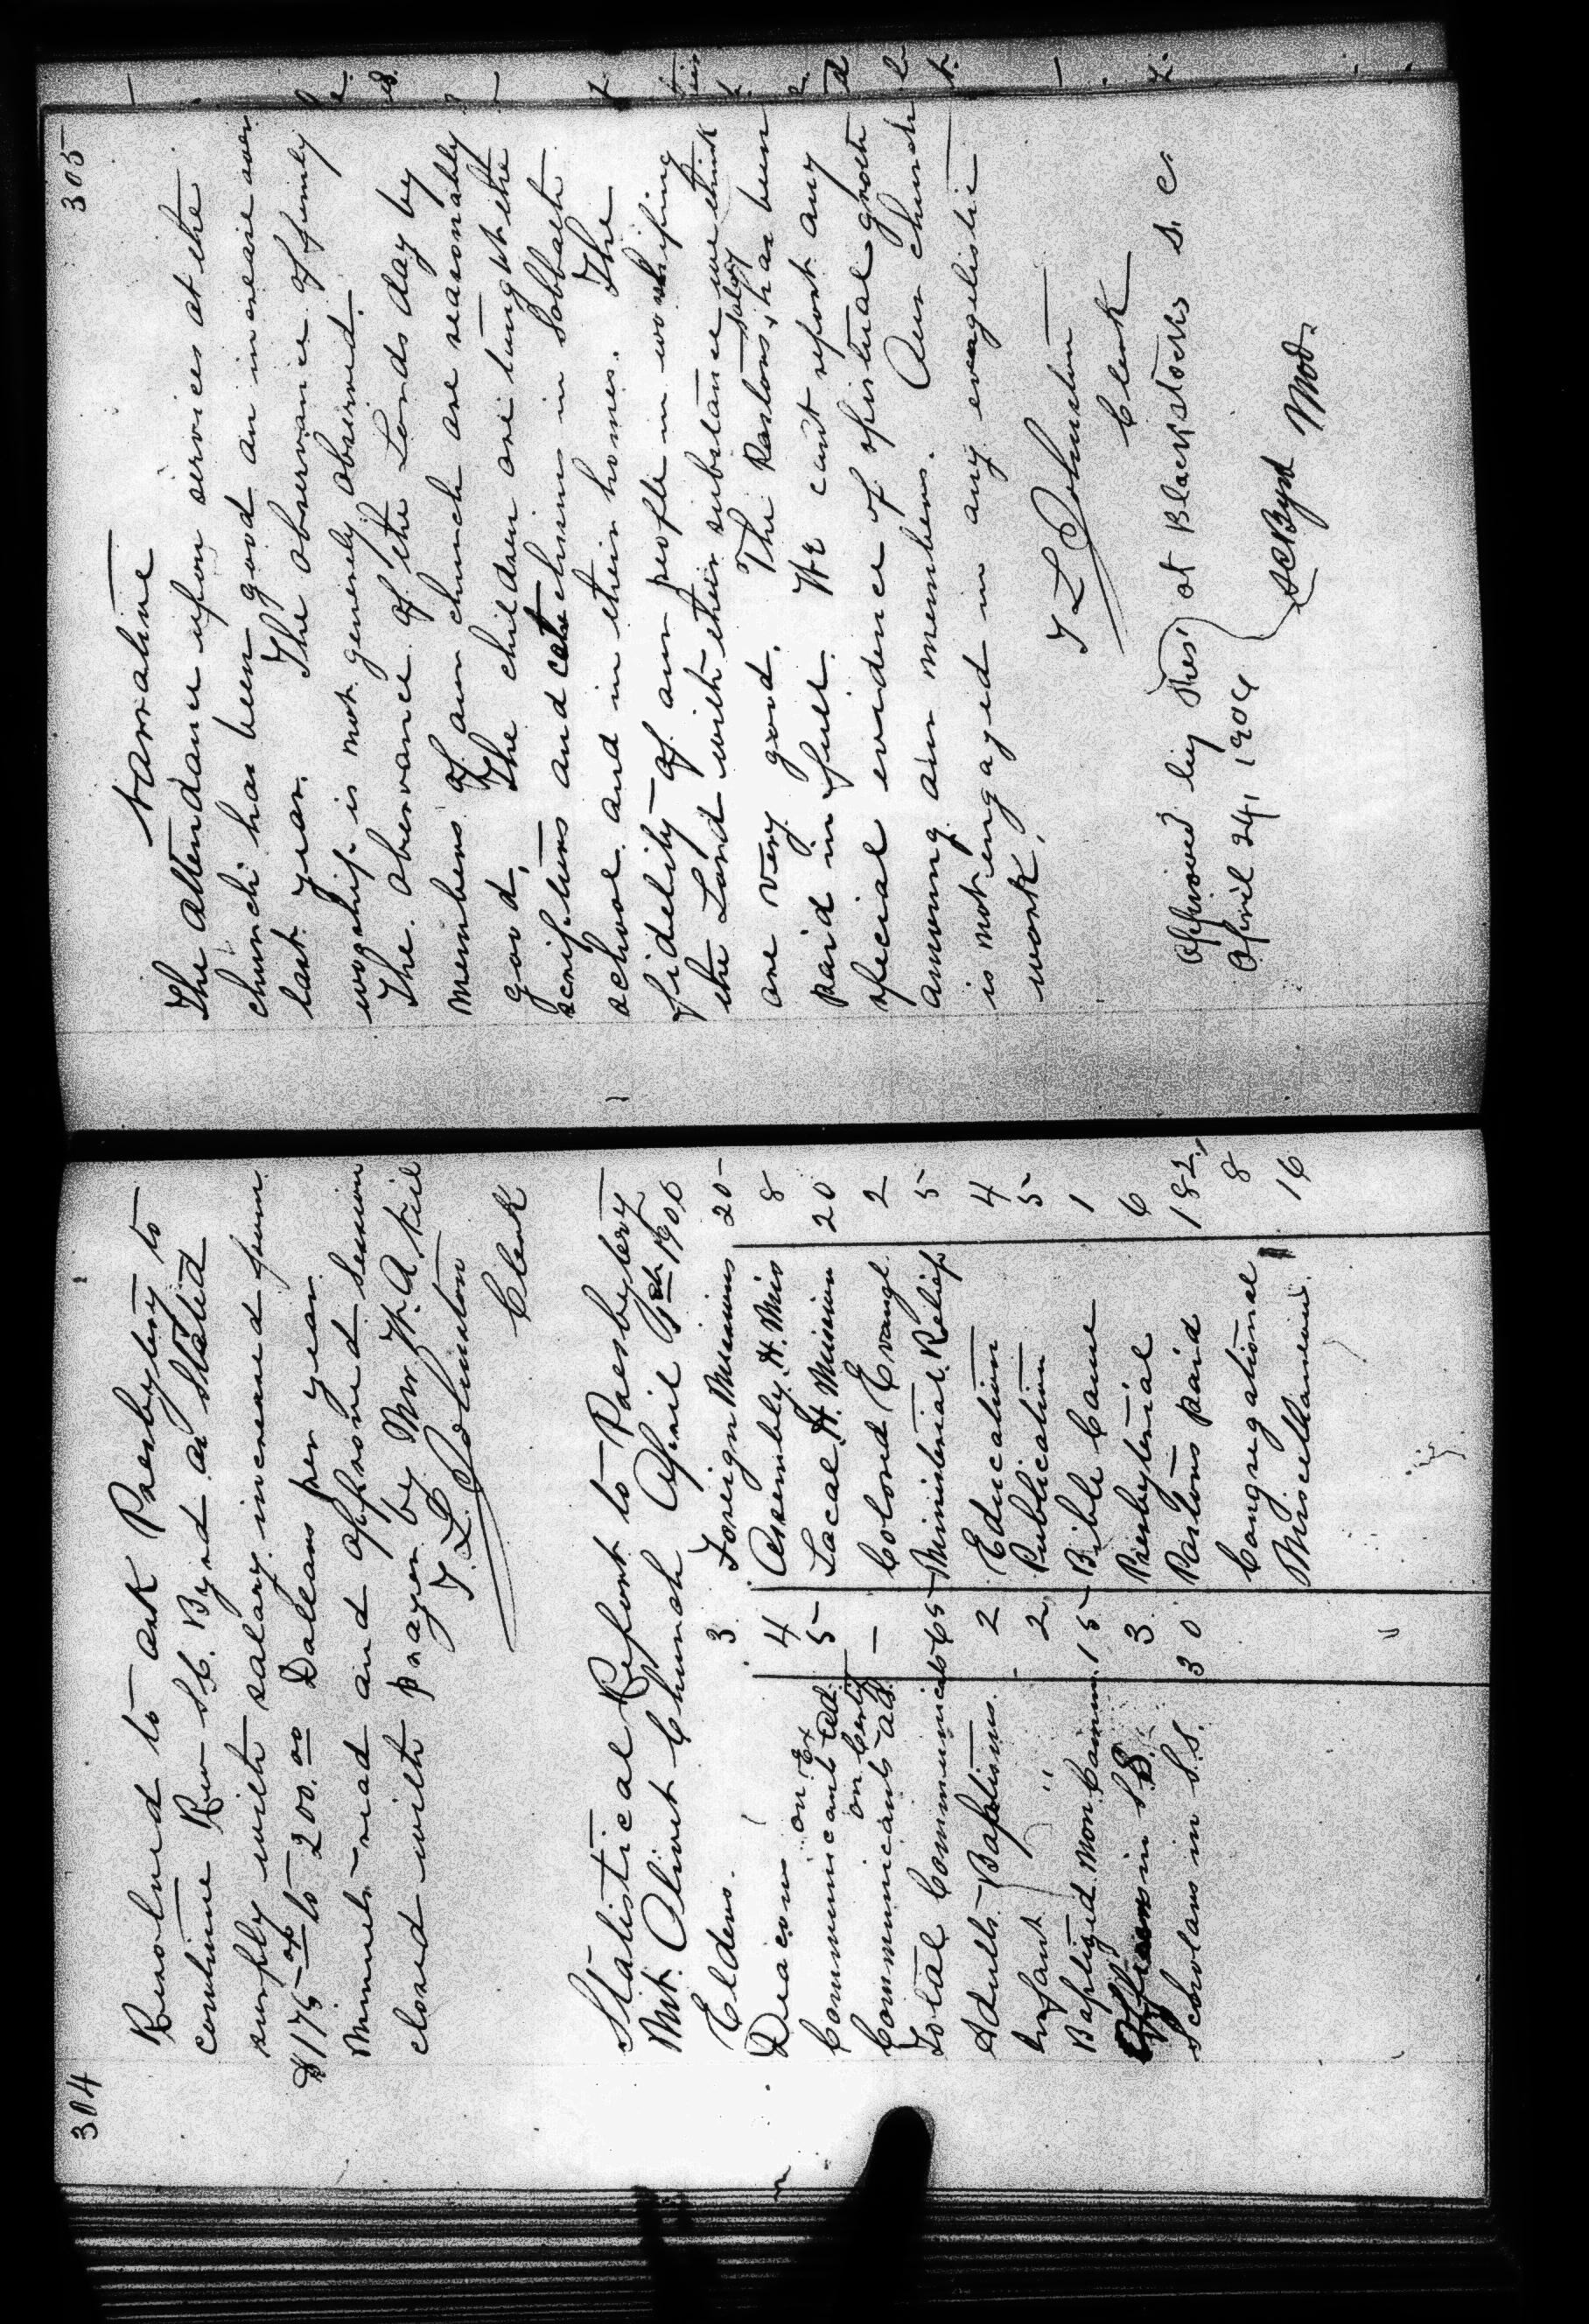 304
Resolved to ask Presbytery to
continue Rev S.C. Byrd as Stated
supply with salary increased from
$175 00 to 200.00 Dollars per year
Minuets read and approved Session
closed with prayer by Mr W. A.
T. L. Johnston
Clerk
Statistical Report to Presbytery
Mt. Olivet Church April 1906
Elders. 3 Foreign Missions 20
Deacons 4 Assembly H. Miss 8
Communicants Add. on Ex 5 Local H. Mission 20
Communicants ad. on Certif — Colored Evangl 2
Total Communicants 65 Ministerial Relief 5
Adults Baptisms. 2 Education 4
Infant " 2 Publication 5
Baptized Non Comm. 15 Bible Cause 1
Officers in S.S. 3 Presbyterial 6
Scholars in S.S. 30 Pastors paid 182
Congregational 8
Miscellaneous 16
305
Narrative
The attendance upon services at the
church has been good an increase over
last year. The observance of family
worship is not generly observed.
The observance of the Lords day by
members of our church are reasonably
good. The children are taught the
scriptures and catechisms in Sabbath
school and in their homes. The
fidelity of our people in worshiping
the Lord with their substance we think
are very good. The Pastors salary has been
paid in full. We cant report any
special evidence of spiritual groth
among our members. Our church
is not engaged in any evangelistic
work.
T L Johnston
Clerk
Approved by Pres' at Blackstocks S. C
April 24, 1906
S C Byrd Mod.